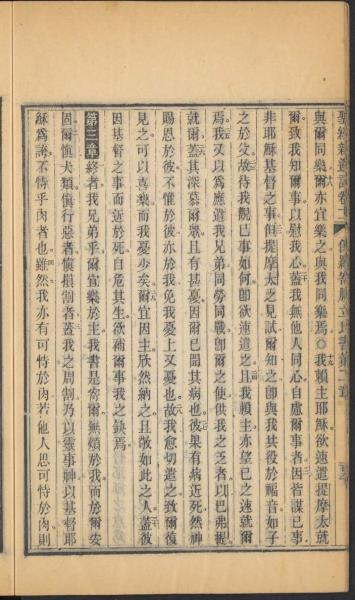 聖經新遺詔卷十
與爾同樂爾亦宜樂之與我同樂焉○我賴主耶穌欲速遣提摩太就
爾致我知爾事以慰我心蓋我無他人同心自慮爾事者因皆謀己事
非耶穌基督之事但提摩太之見試爾知之卽與我共役於福音如子
之於父故待我覩己事如何卽欲速遣之且我賴主亦望己之速就爾
焉我又以爲應遣我兄弟同勞同戰爾之使供我之乏者以巴弗提
就爾蓋其深慕爾眾且有甚憂因爾已聞其病也彼果有病近死然神
賜恩於彼不惟於彼亦於我免我憂上又憂也故我愈切遣之致爾復
見之可以喜樂而我憂少矣爾宜因主欣然納之且敬如此之人蓋彼
因基督之事而近於死自危其生欲補爾事我之缺焉
第三章終者我兄弟乎爾宜樂於主我書是寄爾無煩於我而於爾安
固爾愼犬類愼行惡者愼損割者蓋我之周割乃以靈事神以基督耶
穌爲誇不恃乎肉者也雖然我亦有可恃於肉若他人思可恃於肉則